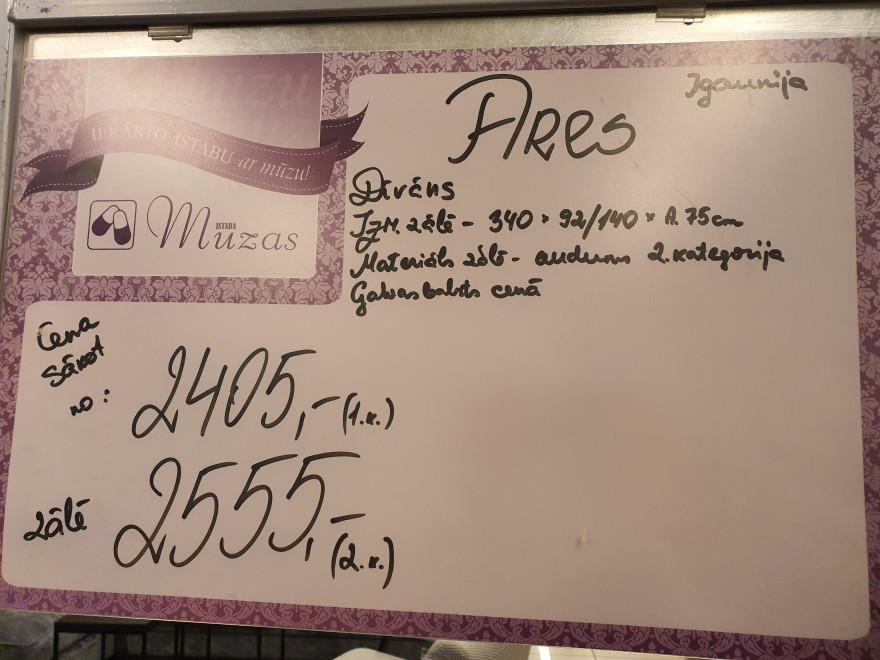 Igaunija
IEKĀRTO ISTABU ar mūzu!
ISTABA
Mūzas
Ares
Dīvāns
Izm. zālē - 340 × 92/140 × A.75cm
Materiāls zālē - audums 2.kategorija
Galvas balsts cenā
Cena
sākot
no:
2405,- (1.k.)
zālē 2555,- (2.k.)